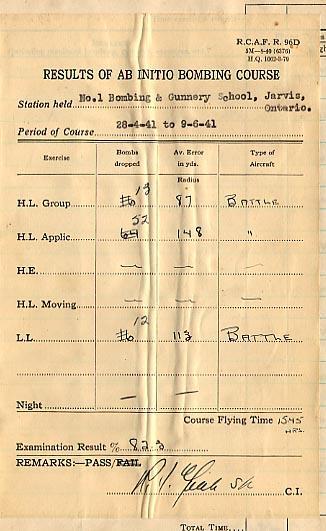 R.C.A.F. R. 96D
5M—8-40 (6376)
H.Q. 1062-3-70
RESULTS OF AB INITIO BOMBING COURSE
Station held No.1 Bombing & Gunnery School, Jarvis, Ontario.
Period of Course 28-4-41 to 9-6-41
Exercise Bombs dropped Av. Error in yds. Type of Aircraft
Radius
H.L. Group 13 87 BATTLE
H.L. Applic 52 64 148 "
H.E. — — —
H.L. Moving — — —
L.L. 12 113 BATTLE
Night — —
Course Flying Time 1545 HRS.
Examination Result % 82.3
REMARKS:—PASS/FAIL
S/L C.I.
TOTAL TIME